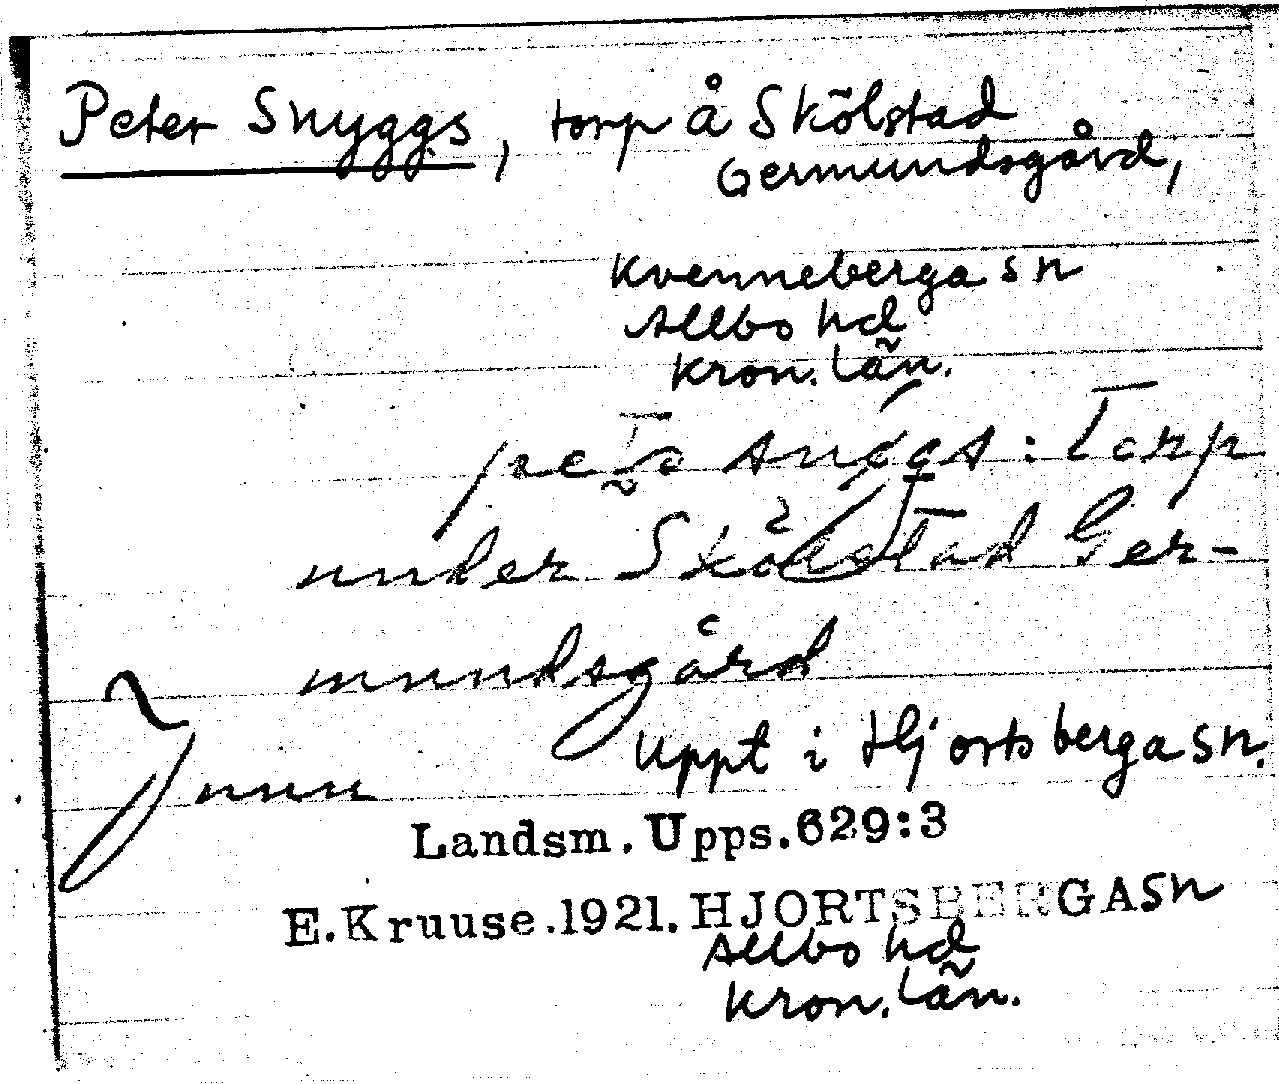 Peter Snyggs, torp å Skölstad
Germundsgård,
Kvenneberga sn
Allbo hd
Kron. län.
: Torp
under Skölstad Ger-
mundsgård
Uppt i Hjortsberga sn.
Landsm. Upps. 629:3
E. Kruuse. 1921. HJORTSBERGA sn
Allbo hd
Kron. län.